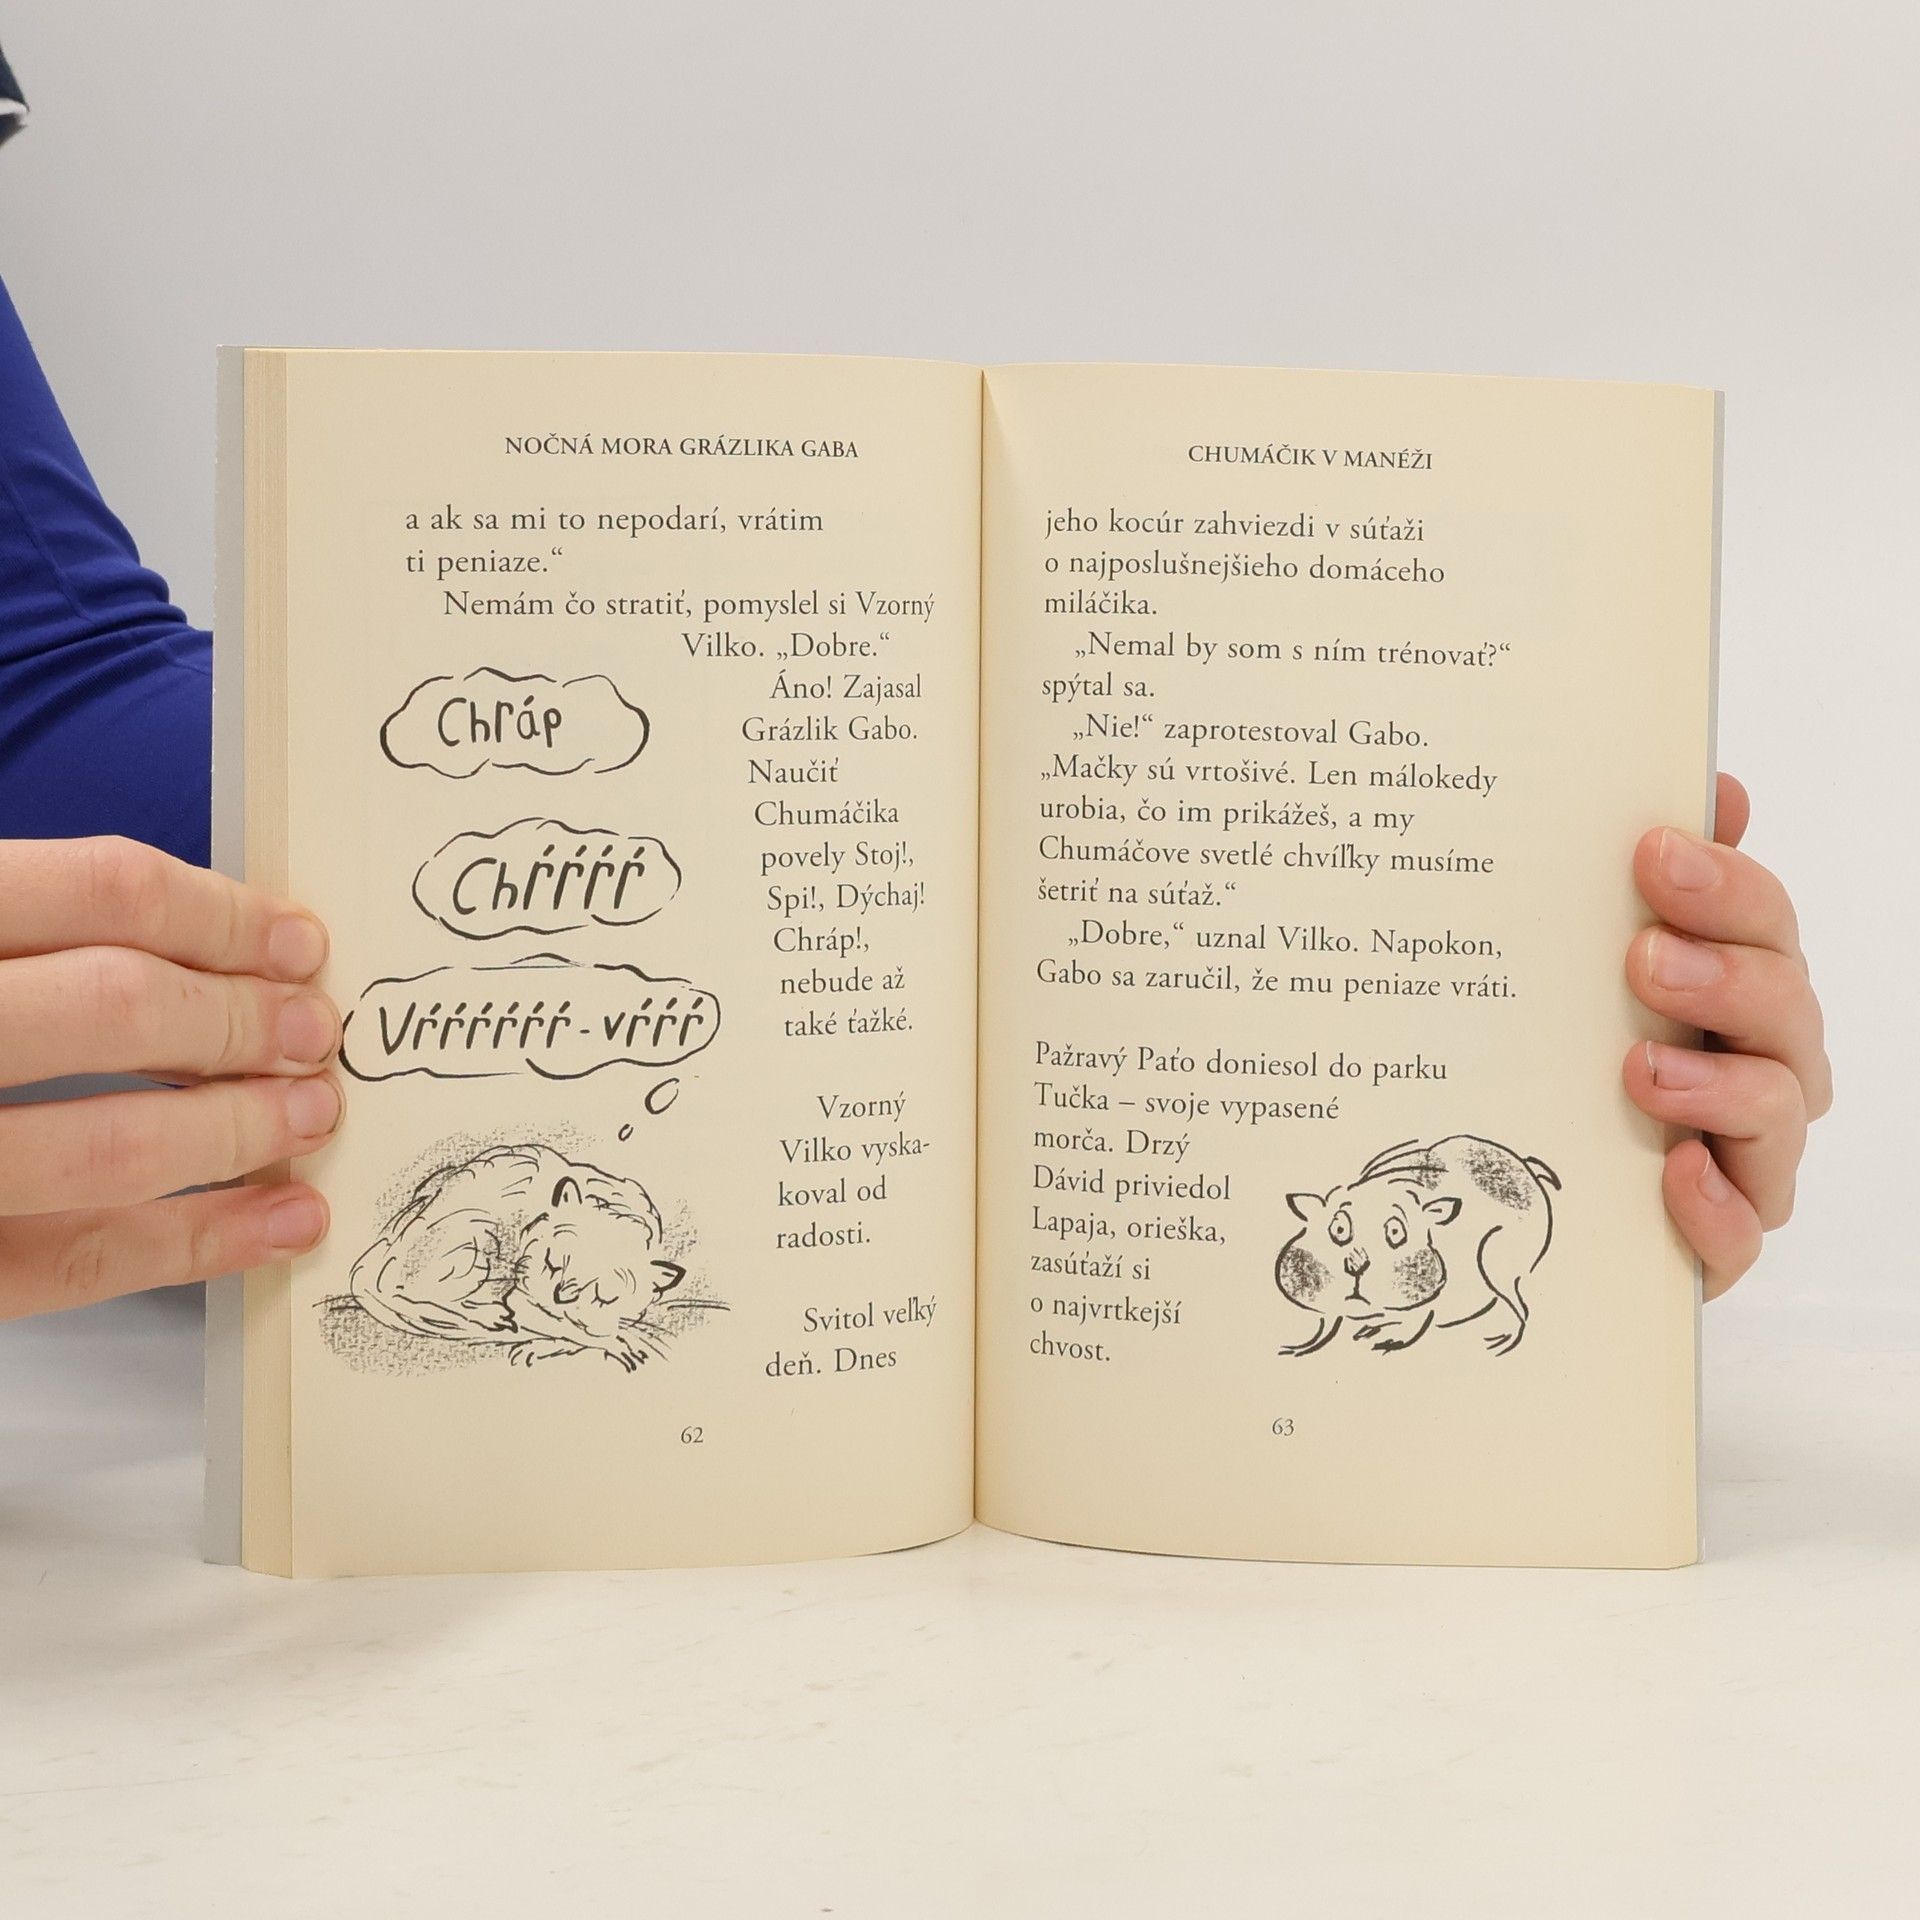 NOČNÁ MORA GRÁZLIKA GABA
a ak sa mi to nepodarí, vrátim
ti peniaze.“
Nemám čo stratiť, pomyslel si Vzorný
Vilko. „Dobre.“
Áno! Zajasal
Grázlik Gabo.
Naučiť
Chumáčika
povely Stoj!,
Spi!, Dýchaj!
Chráp!,
nebude až
také ťažké.
Chŕáp
Chŕŕŕŕ
Vŕŕŕŕŕŕ-vŕŕŕ
Vzorný
Vilko vyska-
koval od
radosti.
Svitol veľký
deň. Dnes
62
CHUMÁČIK V MANÉŽI
jeho kocúr zahviezdi v súťaži
o najposlušnejšieho domáceho
miláčika.
„Nemal by som s ním trénovať?“
spýtal sa.
„Nie!“ zaprotestoval Gabo.
„Mačky sú vrtošivé. Len málokedy
urobia, čo im prikážeš, a my
Chumáčove svetlé chvíľky musíme
šetriť na súťaž.“
„Dobre,“ uznal Vilko. Napokon,
Gabo sa zaručil, že mu peniaze vráti.
Pažravý Paťo doniesol do parku
Tučka – svoje vypasené
morča. Drzý
Dávid priviedol
Lapaja, orieška,
zasúťaží si
o najvrtkejší
chvost.
63